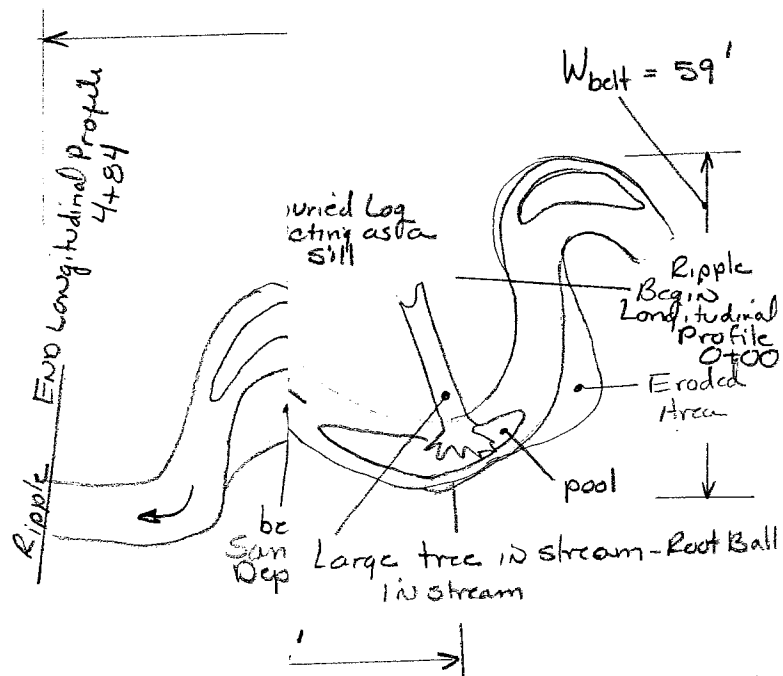 W belt = 59'
END Longitudinal Profile
4+84
Ripple
uried Log
cting as a
sill
Ripple
Begin
Longitudinal
Profile
0+00
Eroded
Area
pool
be
San
Dep
Large tree in stream - Root Ball
in stream
'